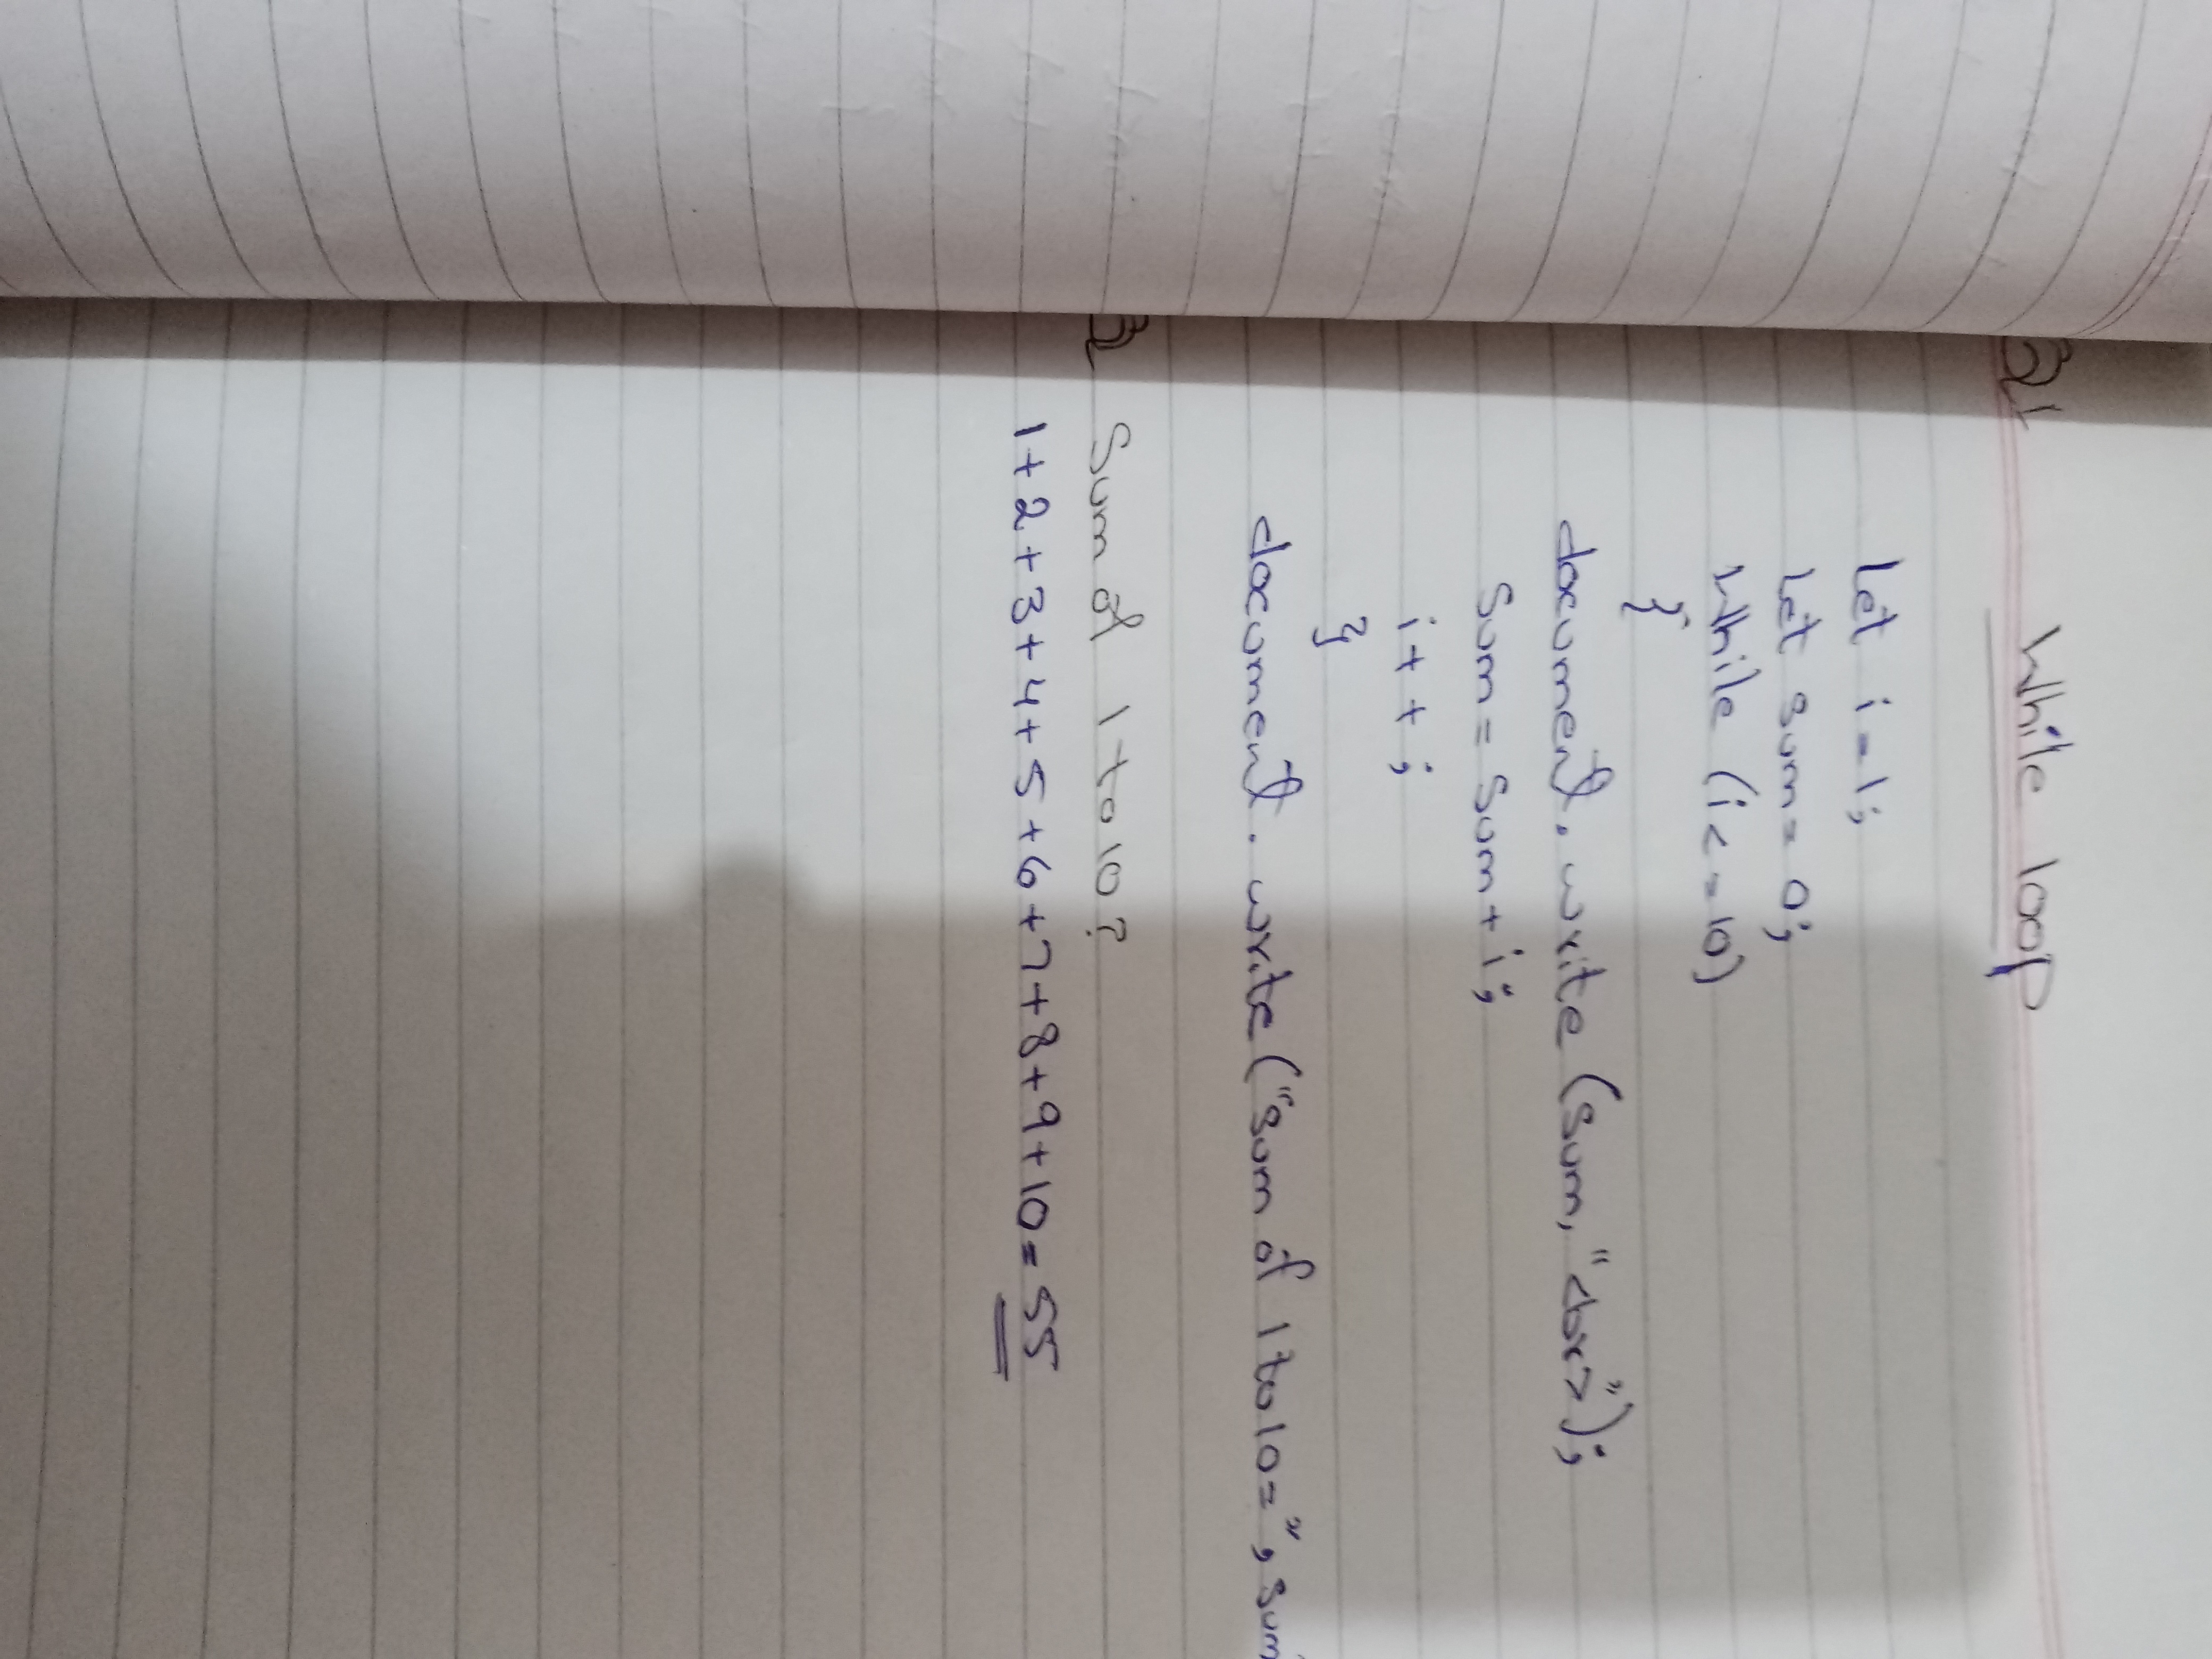 While loop
Let i = 1;
Let sum = 0;
While (i <= 10)
{
document. write (sum, "<br>");
Sum = Sum + i;
i++;
}
document. write ("sum of 1 to 10 = ", sum
Sum of 1 to 10?
1+2+3+4+5+6+7+8+9+10 = 55